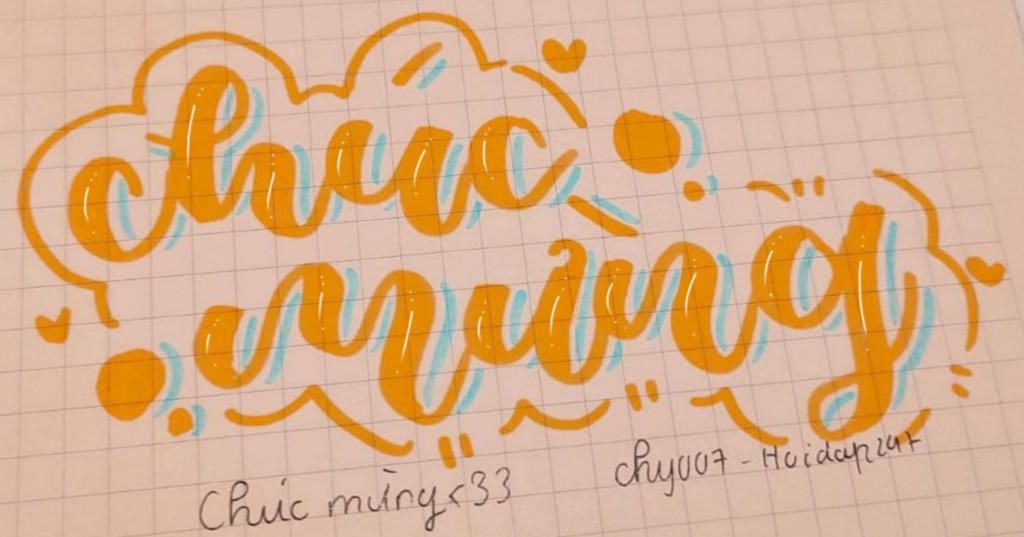 chúc
mừng
Chúc mừng <33
chy007 - Hoidap247